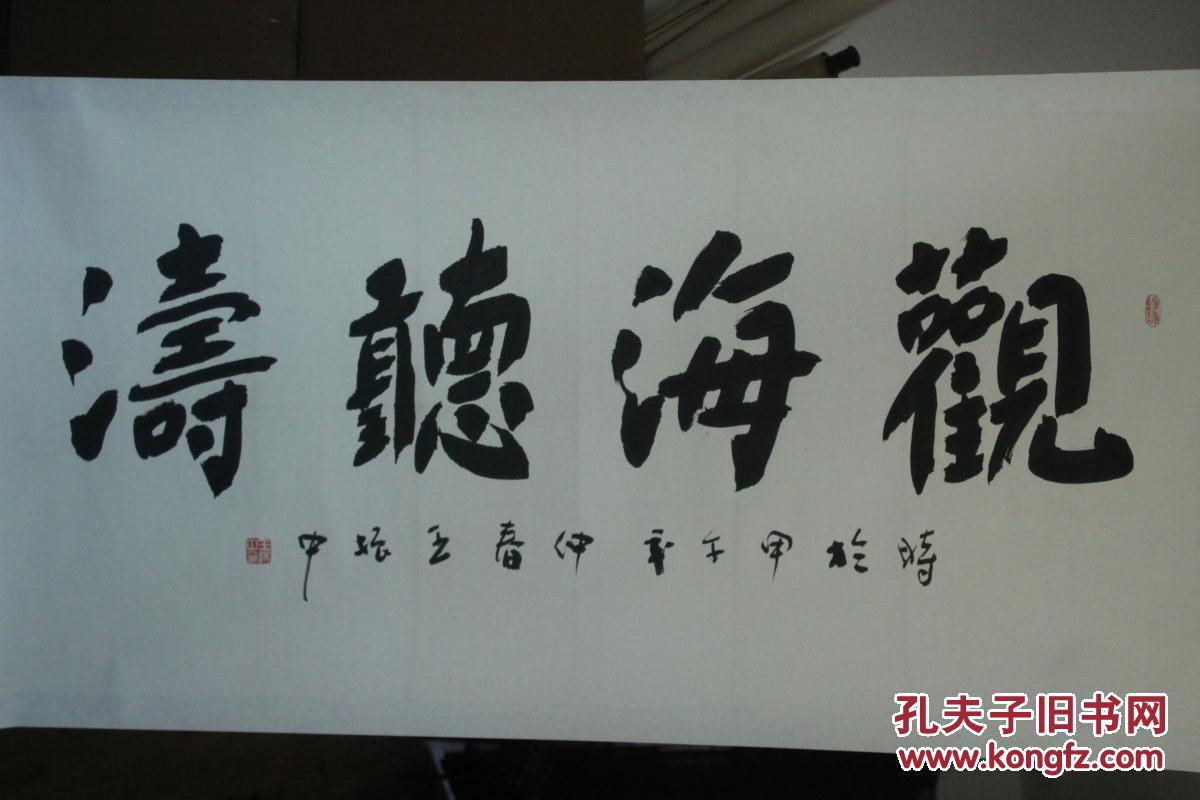 觀海聽濤
時於甲午年仲春王振中
孔夫子旧书网
www.kongfz.com